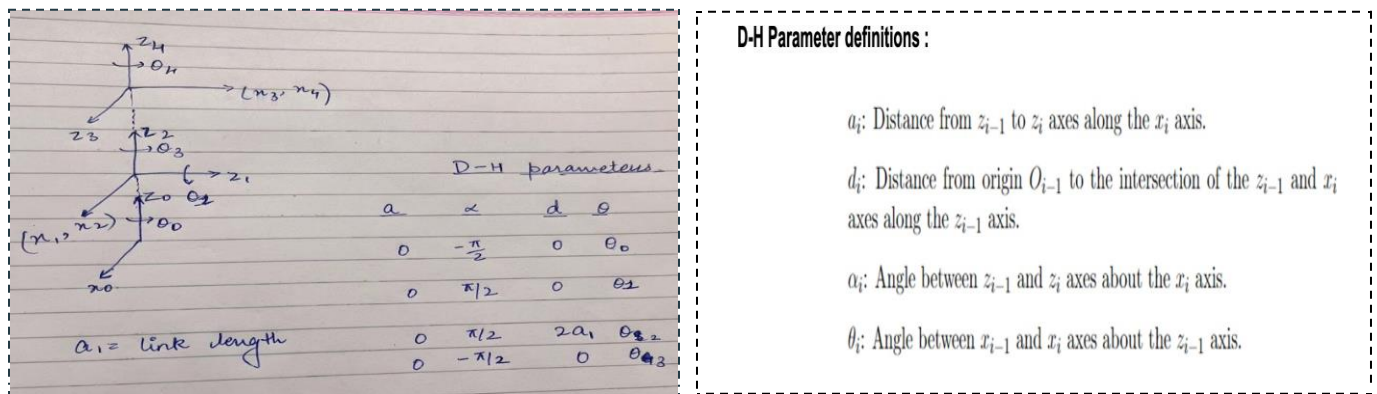 z4
θ4
(x3, x4)
z3
z2
θ3
z1
θ2
z0
(x1, x2)
θ0
x0
D-H parameters
a α d θ
0 -π/2 0 θ0
0 π/2 0 θ1
0 π/2 2a1 θ2
0 -π/2 0 θ3
a1 = link length
D-H Parameter definitions :
aᵢ: Distance from zᵢ₋₁ to zᵢ axes along the xᵢ axis.
dᵢ: Distance from origin Oᵢ₋₁ to the intersection of the zᵢ₋₁ and xᵢ
axes along the zᵢ₋₁ axis.
αᵢ: Angle between zᵢ₋₁ and zᵢ axes about the xᵢ axis.
θᵢ: Angle between xᵢ₋₁ and xᵢ axes about the zᵢ₋₁ axis.